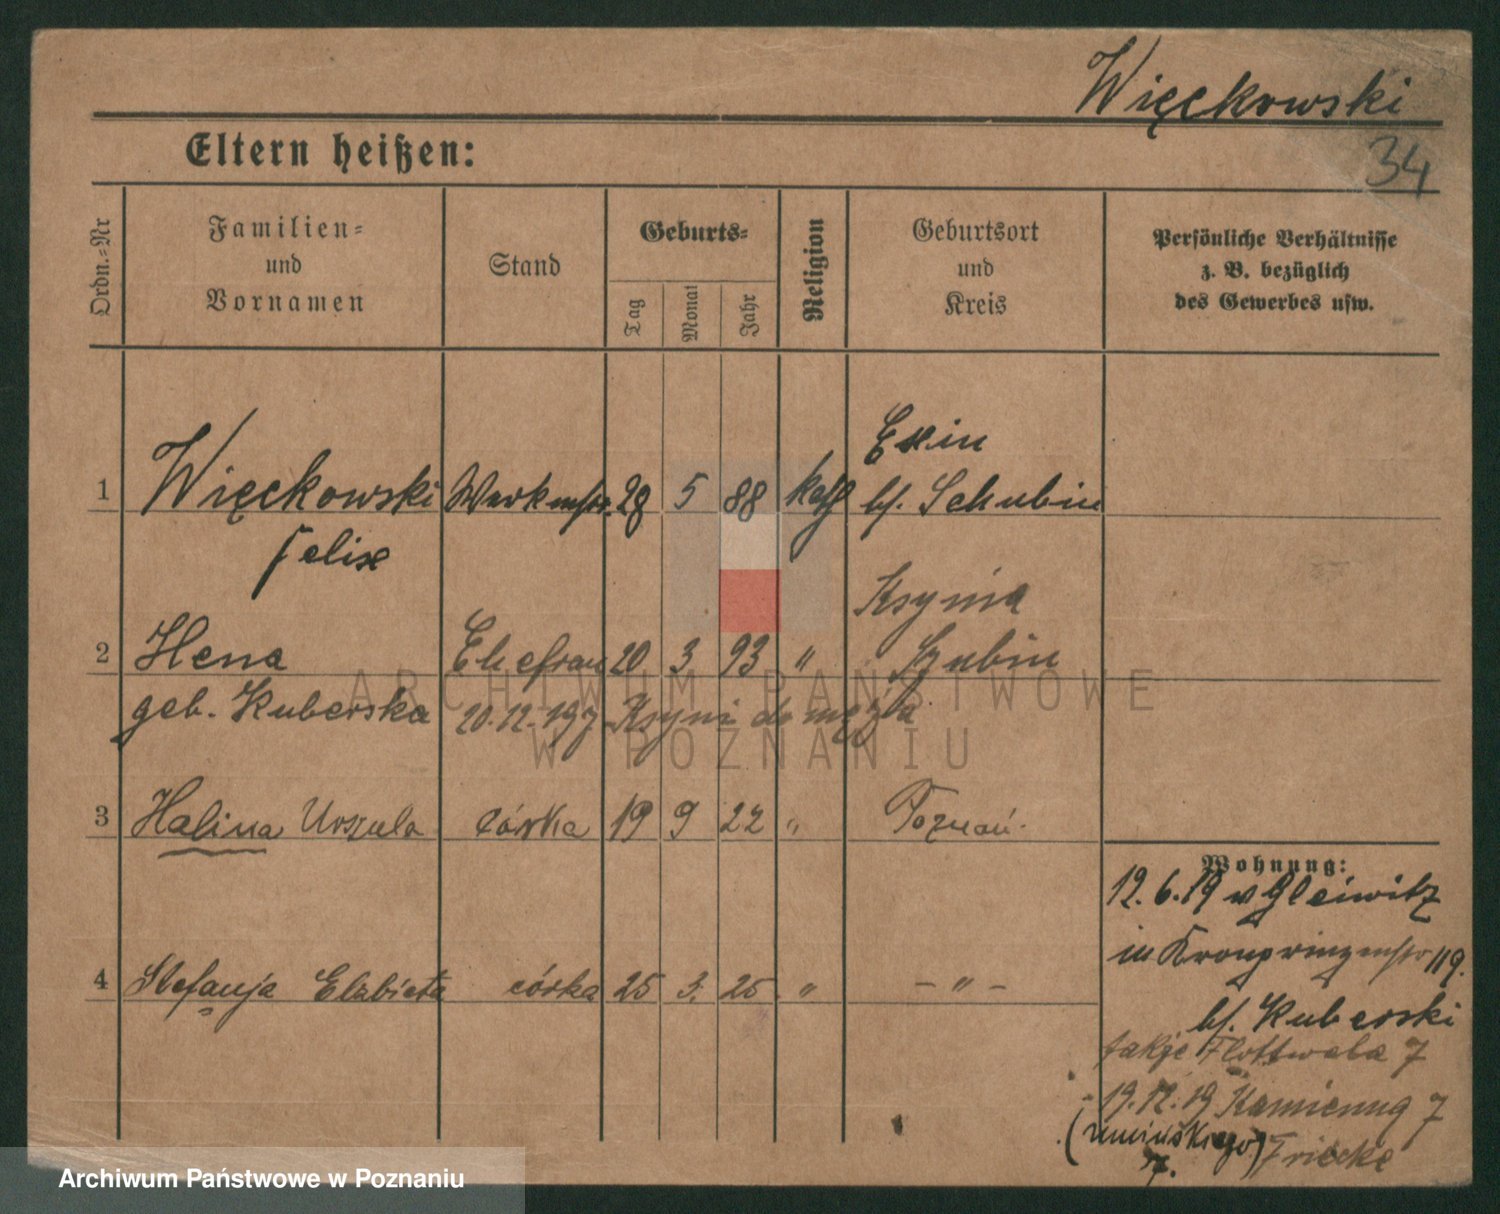 Więckowski
34
Eltern heißen:
Ordn.-Nr
Familien-
und
Vornamen
Stand
Geburts-
Tag
Monat
Jahr
Religion
Geburtsort
und
Kreis
Persönliche Verhältnisse
z. B. bezüglich
des Gewerbes usw.
1 Więckowski Werkmstr. 28 5 88 kath
Felix
Exin
bf. Schubin
2 Hena Ehefrau 20 3 93 "
Ksynia
Szubin
geb. Kuberska 20.12.19 z Ksyni do męża
3 Halina Urszula córka 19 9 22 " Poznań.
4 Stefanja Elzbieta córka 25 3. 25 " - " -
Wohnung:
12.6.19 v Gleiwitz
in Kronprinzenstr 119.
bf. Kuberski
także Flottwela 7
- 19.12.19 Kamienna 7
7.
Friecke
ARCHIWUM PAŃSTWOWE
W POZNANIU
Archiwum Państwowe w Poznaniu